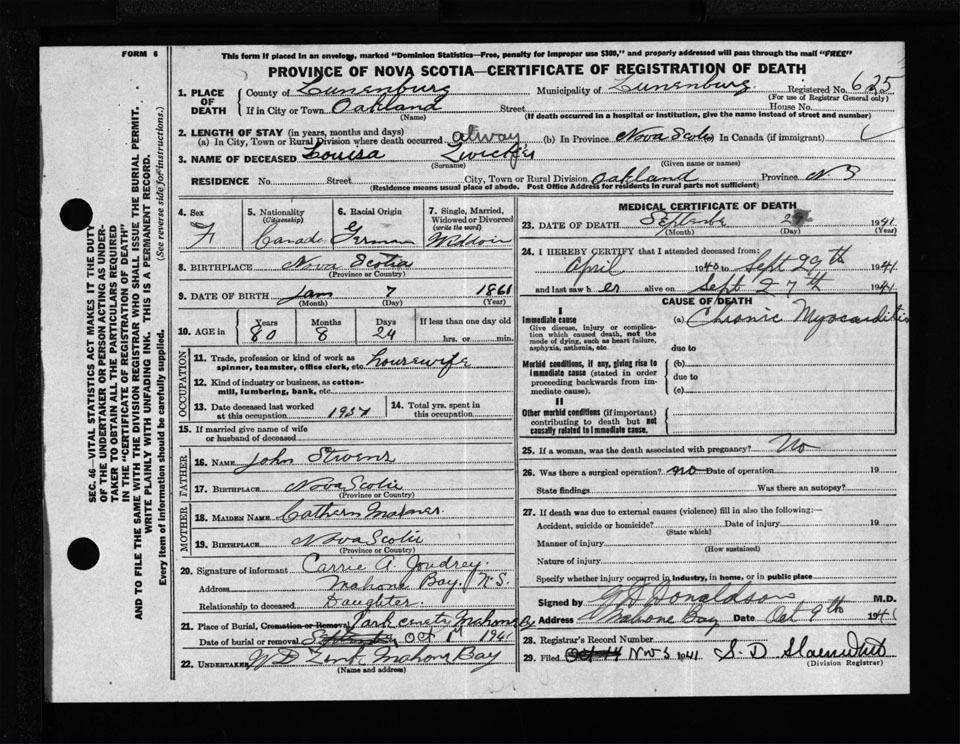 FORM 6
This form if placed in an envelope, marked "Dominion Statistics—Free, penalty for improper use $300," and properly addressed will pass through the mail "FREE"
PROVINCE OF NOVA SCOTIA—CERTIFICATE OF REGISTRATION OF DEATH
1. PLACE OF DEATH County of Lunenburg Municipality of Lunenburg Registered No. 625
(For use of Registrar General only)
If in City or Town Oakland Street House No.
(Name) (If death occurred in a hospital or institution, give the name instead of street and number)
2. LENGTH OF STAY (in years, months and days)
(a) In City, Town or Rural Division where death occurred alway (b) In Province Nova Scotia (c) In Canada (if immigrant)
3. NAME OF DECEASED Louisa Zwicker
(Surname) (Given name or names)
RESIDENCE No. Street City, Town or Rural Division Oakland Province N S
(Residence means usual place of abode. Post Office Address for residents in rural parts not sufficient)
4. Sex F
5. Nationality (Citizenship) Canada
6. Racial Origin German
7. Single, Married, Widowed or Divorced (write the word) Widdow
8. BIRTHPLACE Nova Scotia
(Province or Country)
9. DATE OF BIRTH Jan 7 1861
(Month) (Day) (Year)
10. AGE in Years 80 Months 8 Days 24 If less than one day old hrs. or min.
OCCUPATION
11. Trade, profession or kind of work as spinner, teamster, office clerk, etc. housewife
12. Kind of industry or business, as cotton-mill, lumbering, bank, etc.
13. Date deceased last worked at this occupation 1937
14. Total yrs. spent in this occupation
15. If married give name of wife or husband of deceased
FATHER
16. NAME John Stivens
17. BIRTHPLACE Nova Scotia
(Province or Country)
MOTHER
18. MAIDEN NAME Cathern
19. BIRTHPLACE Nova Scotia
(Province or Country)
20. Signature of informant Carrie A. Joudrey
Address Mahone Bay, N.S.
Relationship to deceased Daughter
21. Place of Burial, Cremation or Removal Park Mahone By
Date of burial or removal Oct 1st 1941
22. UNDERTAKER Mahone Bay
(Name and address)
MEDICAL CERTIFICATE OF DEATH
23. DATE OF DEATH 29 1941
(Month) (Day) (Year)
24. I HEREBY CERTIFY that I attended deceased from:
April 1940 to Sept 29th 1941
and last saw h er alive on Sept 27th 1941
CAUSE OF DEATH
I
Immediate cause
Give disease, injury or complication which caused death, not the mode of dying, such as heart failure, asphyxia, asthenia, etc.
(a) Chronic Myocarditis
due to
Morbid conditions, if any, giving rise to immediate cause (stated in order proceeding backwards from immediate cause).
(b)
due to
(c)
II
Other morbid conditions (if important) contributing to death but not causally related to immediate cause.
25. If a woman, was the death associated with pregnancy? No
26. Was there a surgical operation? no Date of operation 19
State findings Was there an autopsy?
27. If death was due to external causes (violence) fill in also the following:—
Accident, suicide or homicide? Date of injury 19
(State which)
Manner of injury
(How sustained)
Nature of injury
Specify whether injury occurred in industry, in home, or in public place
Signed by Donaldson M.D.
Address Mahone Bay Date Oct 9th 1941
28. Registrar's Record Number
29. Filed Oct 14 1941 S. D.
(Division Registrar)
SEC. 46—VITAL STATISTICS ACT MAKES IT THE DUTY
OF THE UNDERTAKER OR PERSON ACTING AS UNDER-
TAKER TO OBTAIN ALL THE PARTICULARS REQUIRED
IN THE "CERTIFICATE OF REGISTRATION OF DEATH"
AND TO FILE THE SAME WITH THE DIVISION REGISTRAR WHO SHALL ISSUE THE BURIAL PERMIT.
WRITE PLAINLY WITH UNFADING INK. THIS IS A PERMANENT RECORD.
Every item of information should be carefully supplied. (See reverse side for instructions.)